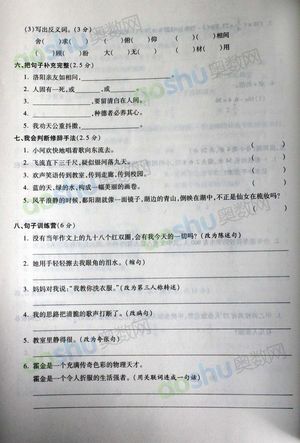 (3)写出反义词。(3分)
舍( )求( ) ( )俯( )仰 ( )( )相间
顾( )( )彼 大( )无( ) ( )材( )用
六、把句子补充完整(2.5分)
1. 洛阳亲友如相问,
2. 人固有一死,或 ,或 。
3. ,要留清白在人间。
4. ,种德者必养其心。
5. 我劝天公重抖擞,
七、我会判断修辞手法(2.5分)
1. 小河欢快地唱着歌向东流去。 ( )
2. 飞流直下三千尺,疑似银河落九天。 ( )
3. 欢声笑语传到教室,传到走廊,传到校园。 ( )
4. 蓝的天,绿的水,构成一幅美丽的画卷。 ( )
5. 风平浪静的时候,鄱阳湖就像一面镜子,湖边的青山,倒映在湖中,不正是仙女在梳妆吗?
( )
八、句子训练营(6分)
1. 没有当年作文上的九十八个红双圈,会有我今天的一切吗?(改为陈述句)
2. 她用手轻轻擦去我眼角的泪水。(缩句)
3. 妈妈对我说:“我教你洗衣服。”(改为第三人称转述)
4. 我的思路把清脆的歌声打断了。(改病句)
5. 教室里静得很。(改为夸张句)
6. 霍金是一个充满传奇色彩的物理天才。
霍金是一个令人折服的生活强者。(用关联词连成一句话)
aoshu奥数网
aoshu奥数网
aoshu奥数网